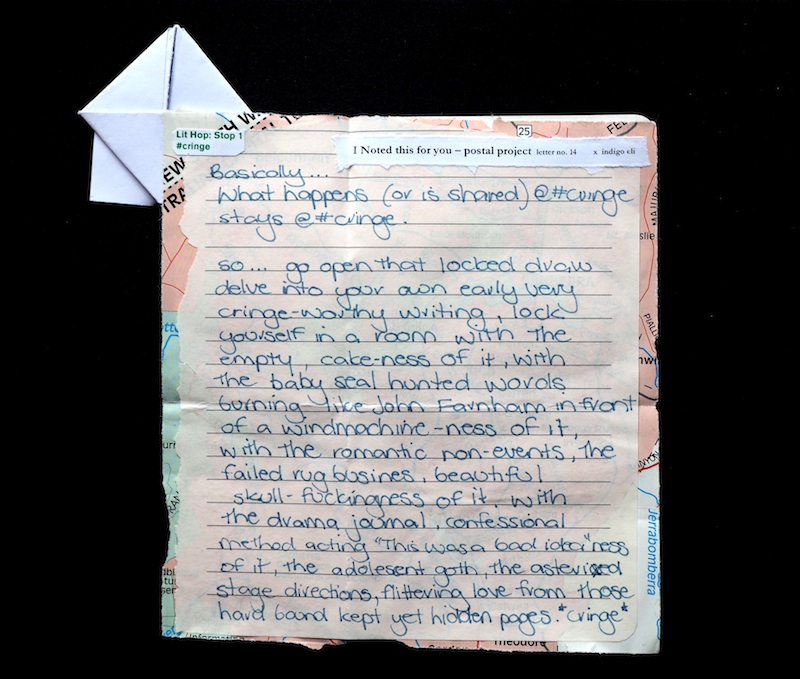 Lit Hop: Stop 1
#cringe
25
I Noted this for you – postal project letter no. 14 x indigo eli
Basically...
What happens (or is shared) @#cringe
stays @#cringe.
so... go open that locked draw
delve into your own early very
cringe-worthy writing, lock
yourself in a room with the
empty, cake-ness of it, with
the baby seal hunted words
burning like John Farnham in front
of a windmachine-ness of it,
with the romantic non-events, the
failed rug busines, beautiful
skull-fuckingness of it, with
the drama journal, confessional
method acting "This was a bad idea"ness
of it, the adolesent goth, the asterixed
stage directions, flittering love from those
hard band kept yet hidden pages. *cringe*
Jerrabomberra
Theodore